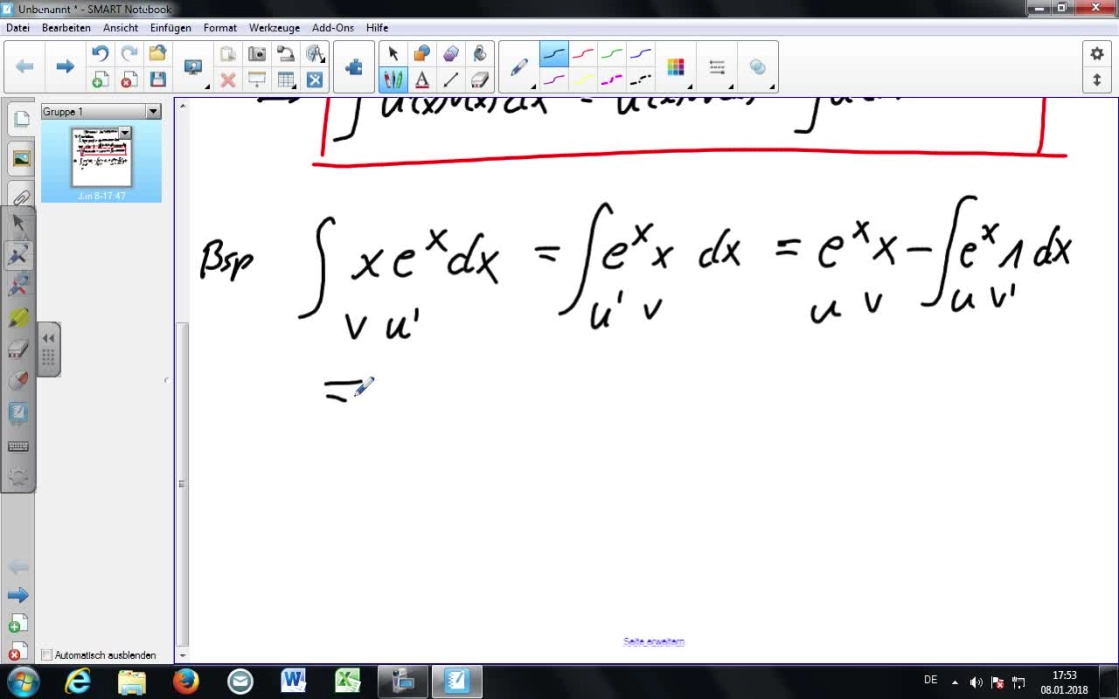 Unbenannt * - SMART Notebook
Datei Bearbeiten Ansicht Einfügen Format Werkzeuge Add-Ons Hilfe
Gruppe 1
Bsp ∫ x eˣ dx = ∫ eˣ x dx = eˣ x − ∫ eˣ 1 dx
v u' u' v u v u v'
=
Seite erweitern
Automatisch ausblenden
DE 17:53
08.01.2018